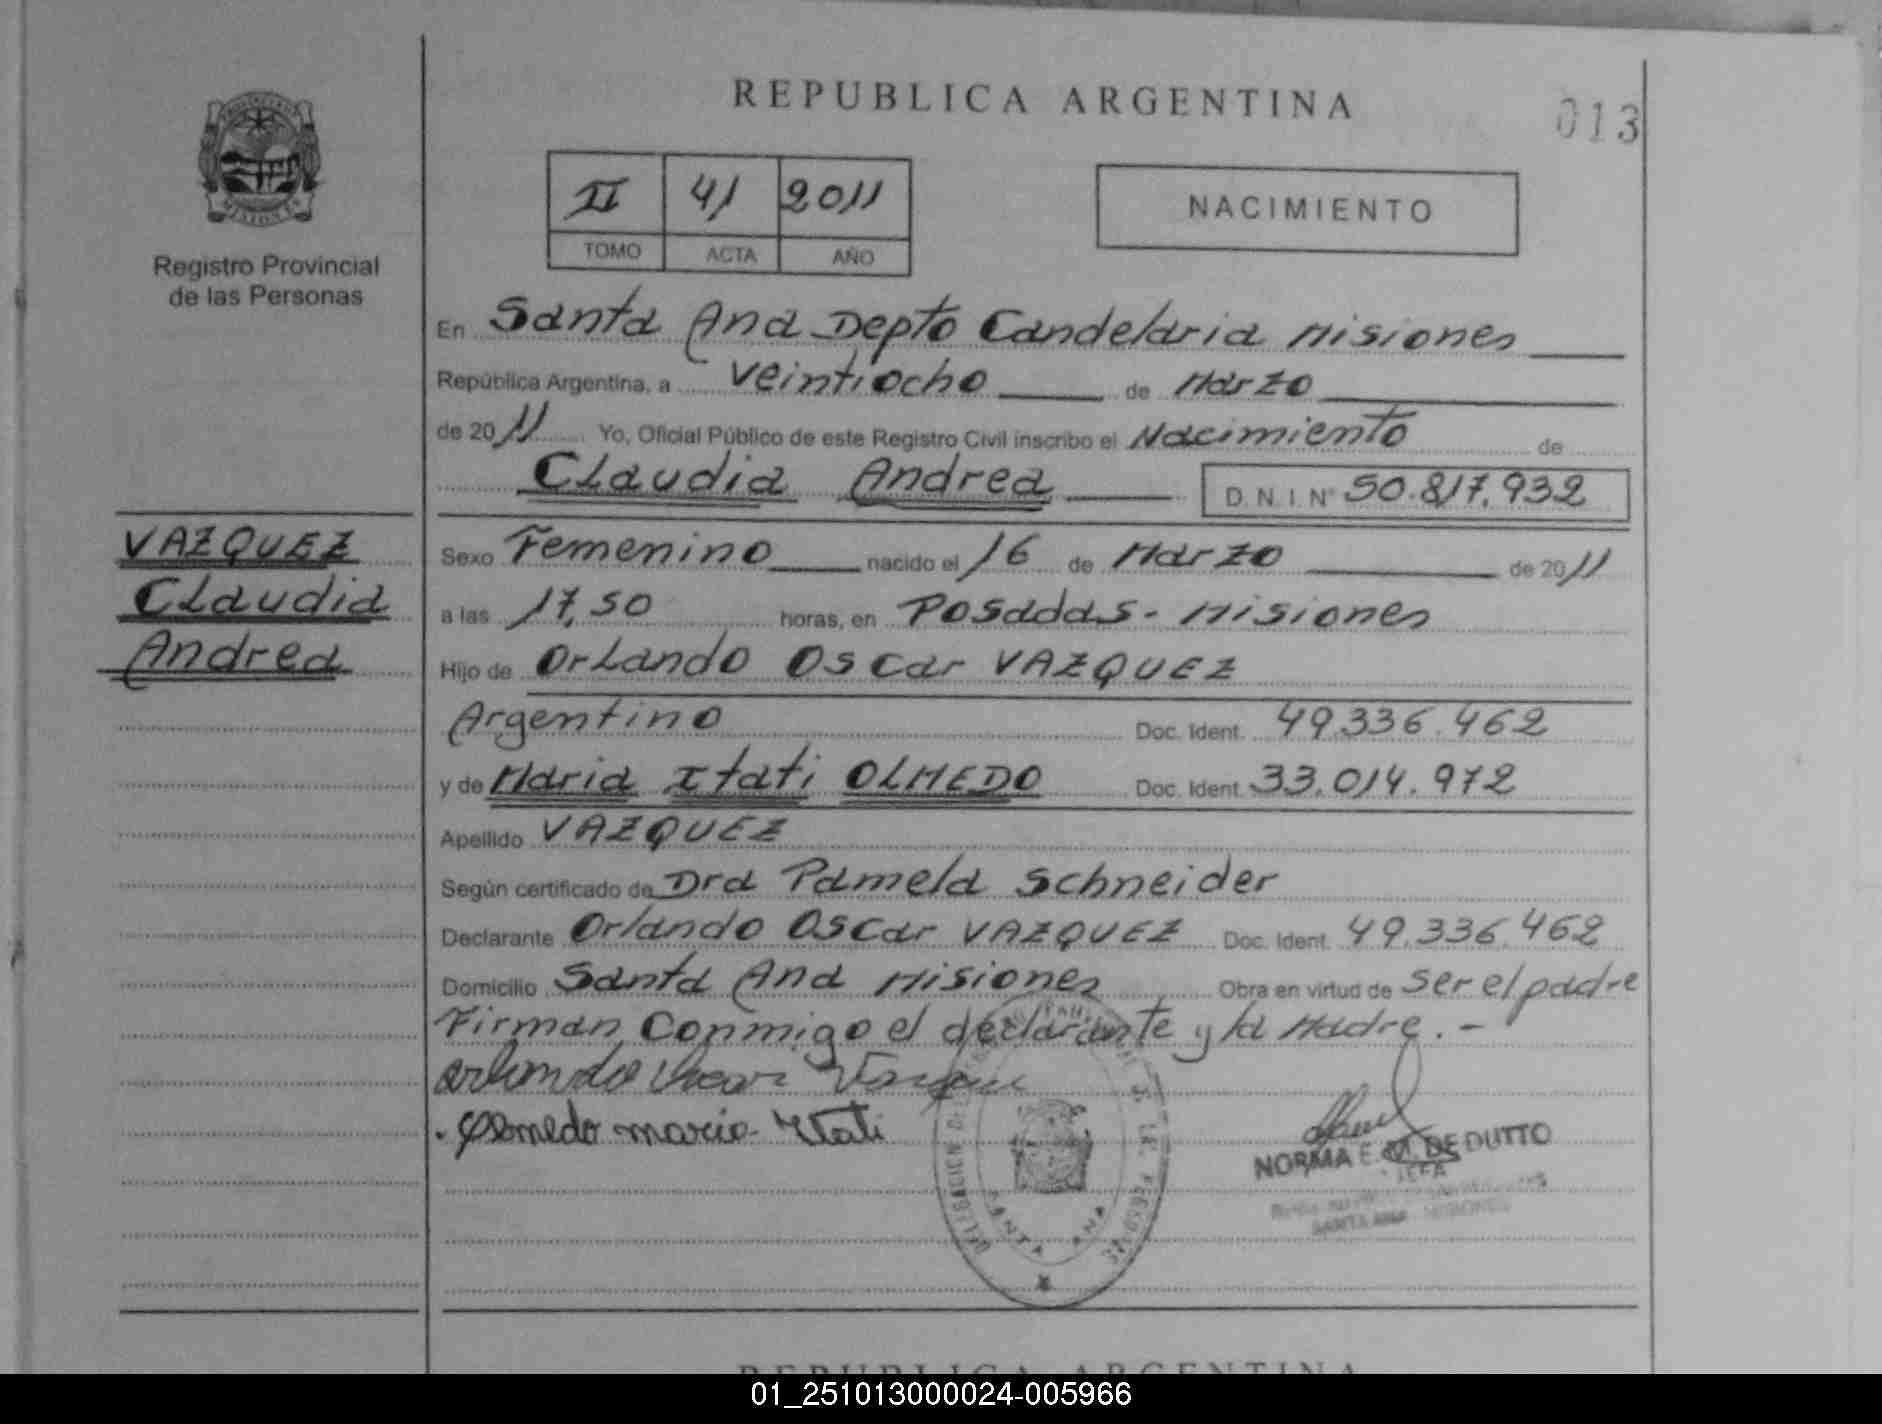 REPUBLICA ARGENTINA
013
MISIONES
Registro Provincial
de las Personas
II 41 2011
TOMO ACTA AÑO
NACIMIENTO
En Santa Ana Depto Candelaria Misiones
República Argentina, a veintiocho de Marzo
de 2011 Yo, Oficial Público de este Registro Civil inscribo el Nacimiento de
Claudia Andrea D.N.I.Nº 50.817.932
VAZQUEZ
Claudia
Andrea
Sexo Femenino nacido el 16 de Marzo de 2011
a las 17,50 horas, en Posadas - Misiones
Hijo de Orlando Oscar VAZQUEZ
Argentino Doc. Ident. 49.336.462
y de Maria Itati OLMEDO Doc. Ident. 33.014.972
Apellido VAZQUEZ
Según certificado de Dra Pamela Schneider
Declarante Orlando Oscar VAZQUEZ Doc. Ident. 49.336.462
Domicilio Santa Ana Misiones Obra en virtud de ser el padre
Firman Conmigo el declarante y la Madre.-
Orlando Oscar
Olmedo maria Itati
DELEGACION DE LAS PERSONAS
SANTA ANA
NORMA E. M. DE DUTTO
JEFA
SANTA ANA - MISIONES
REPUBLICA ARGENTINA
01_251013000024-005966